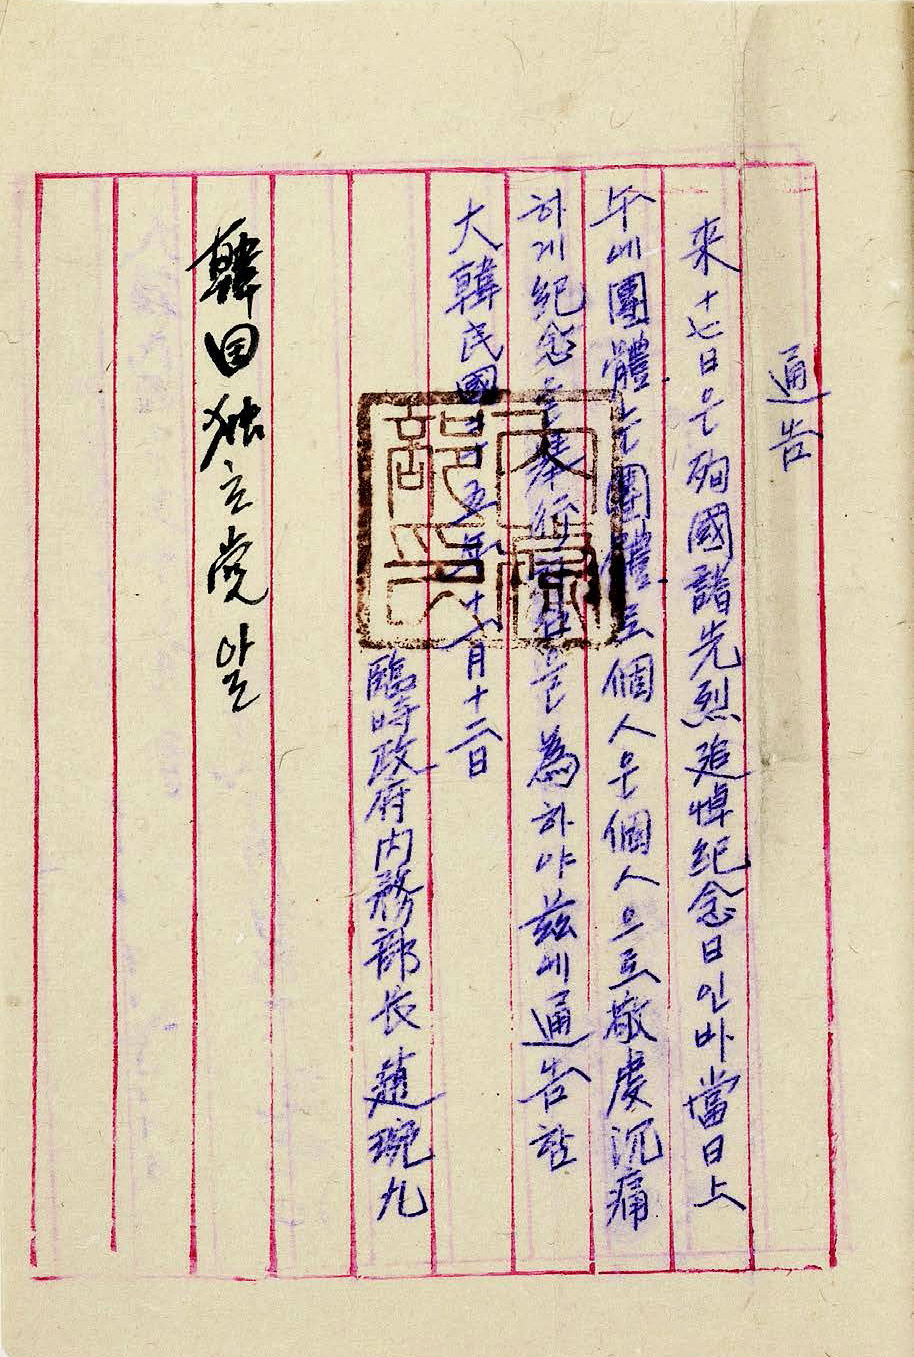 通告
來十七日은 殉國諸先烈追悼紀念日인바 當日上
午에 團體는 團體로 個人은 個人으로 敬虔沉痛
하게 紀念을 擧行하심을 為하야 茲에 通告함
大韓民國二十五年十一月十二日
臨時政府內務部長 趙琬九
韓国独立党 앞
內務部印